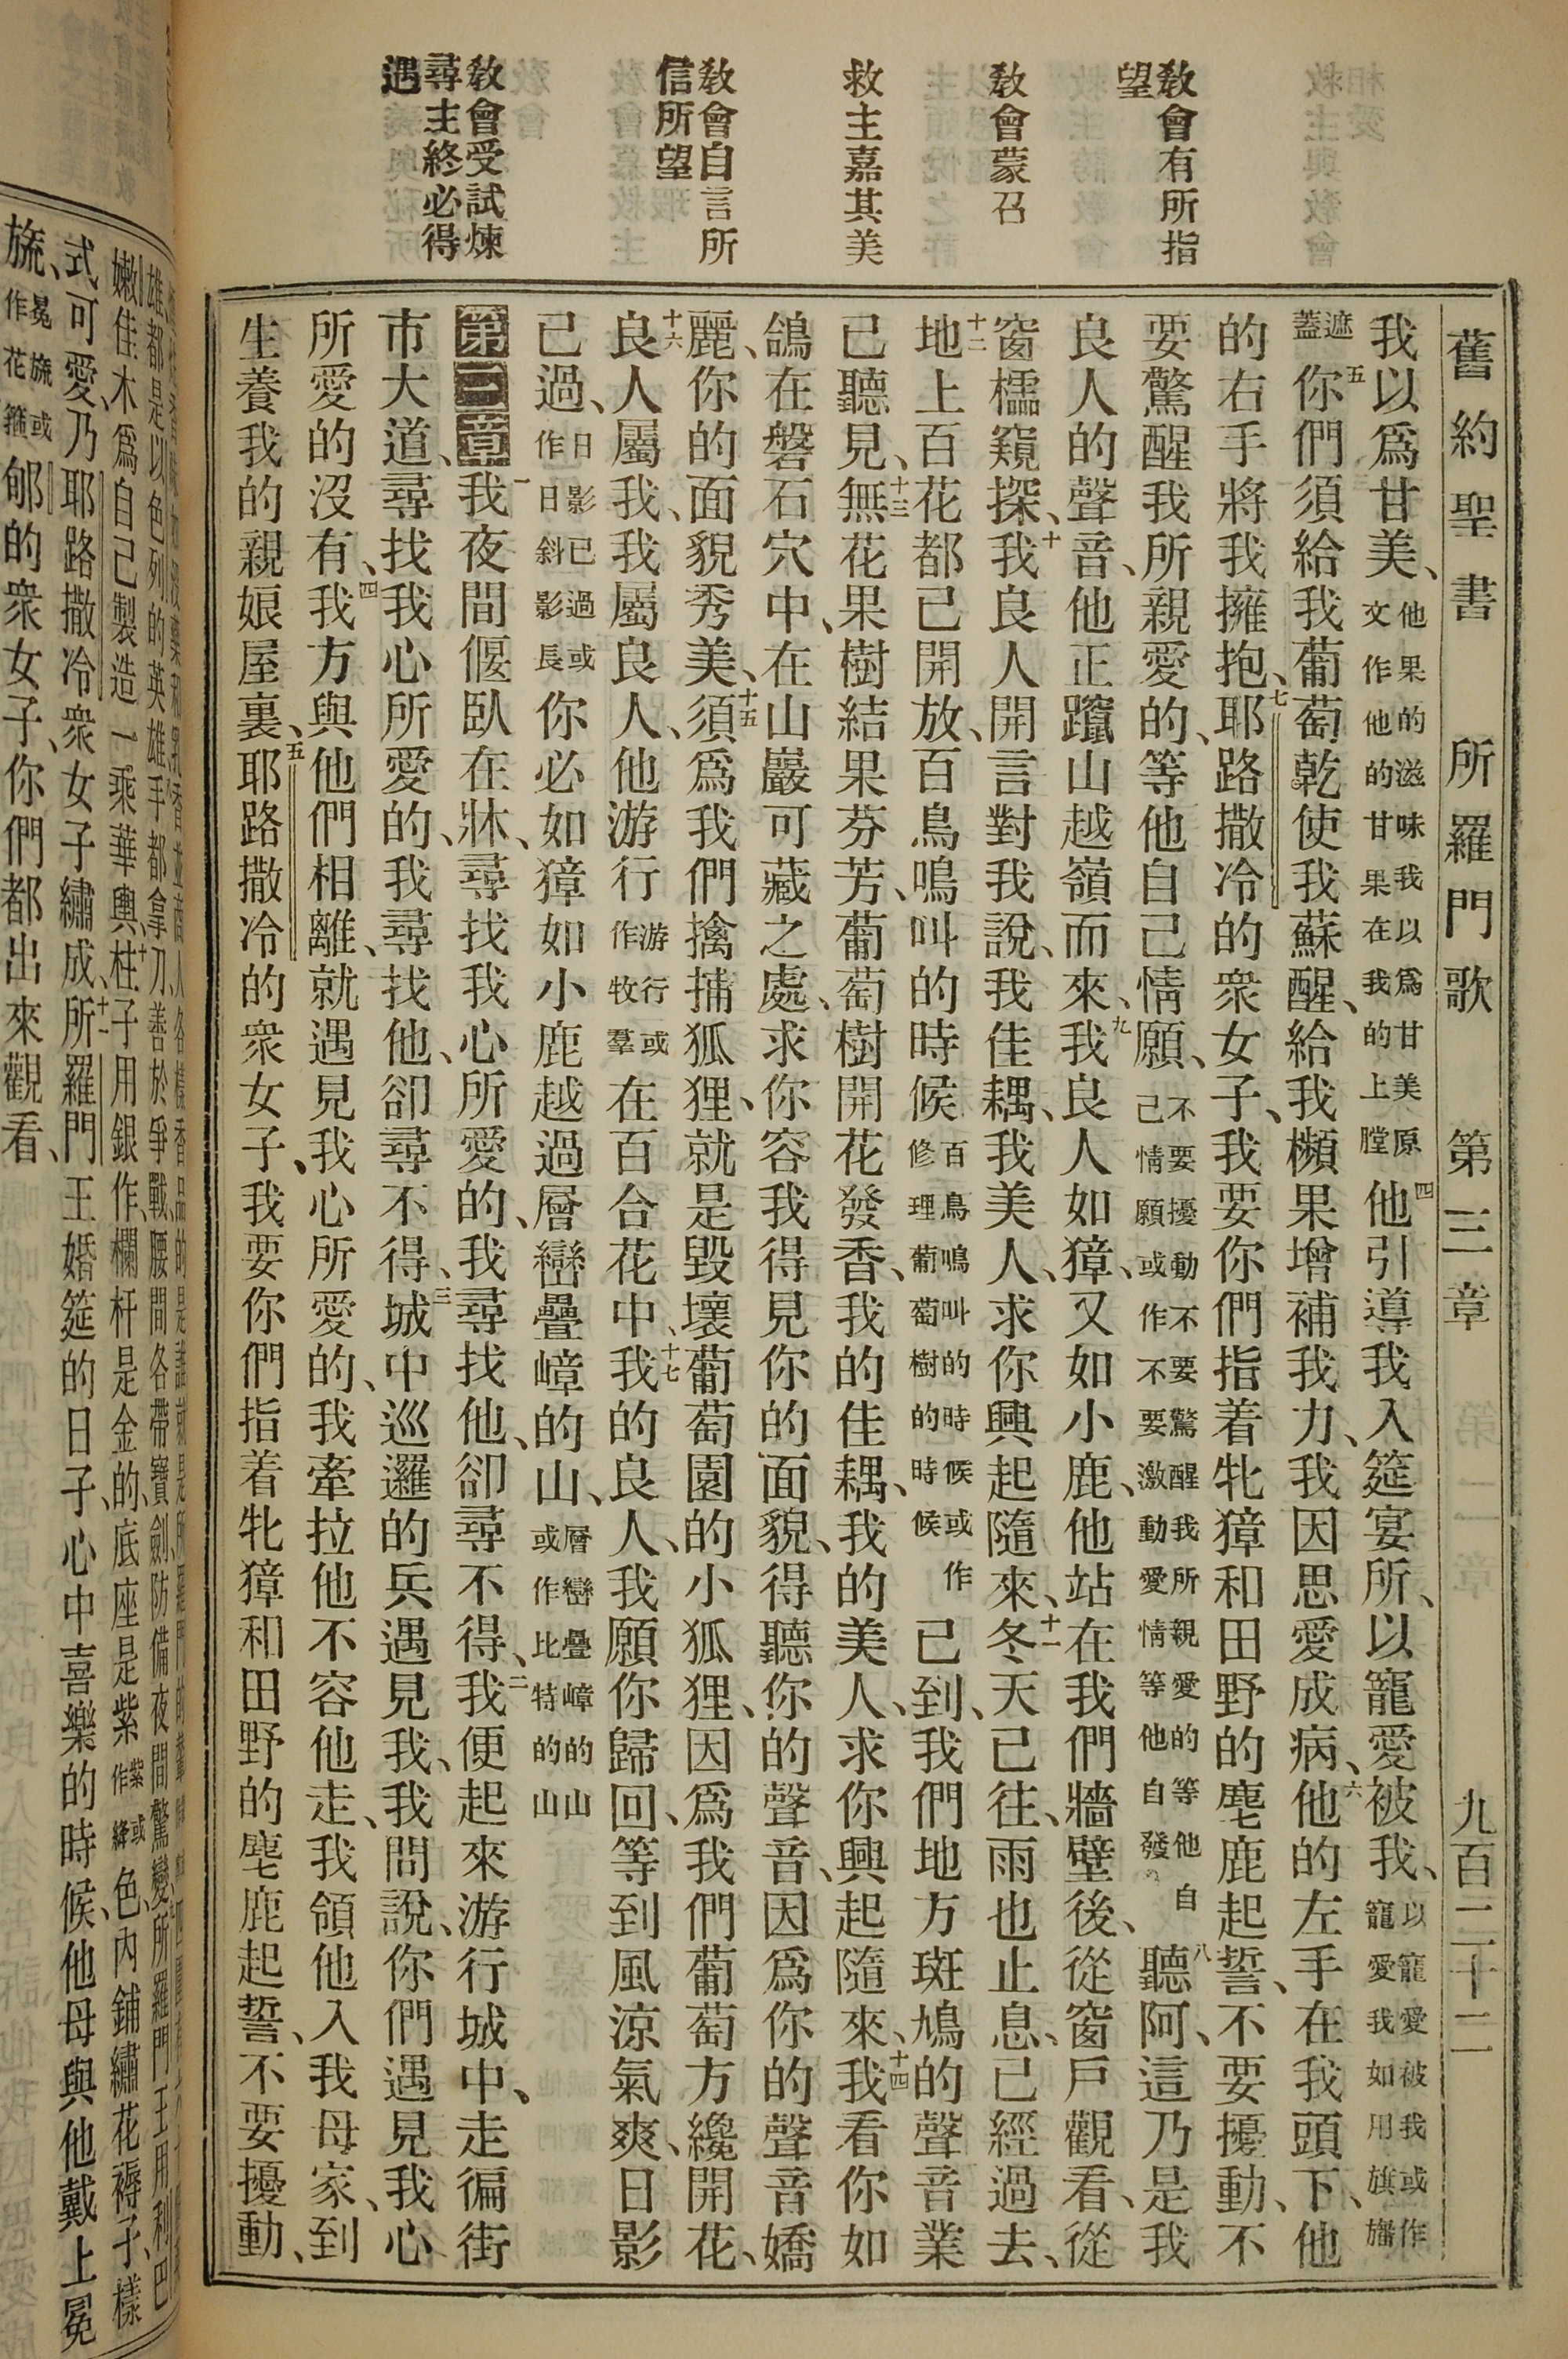 舊約聖書 所羅門歌 第三章 九百二十二
教會有所指
望
教會蒙召
救主嘉其美
教會自言所
信所望
教會受試煉
尋主終必得
遇
我以爲甘美、他果的滋味我以爲甘美原文作他的甘果在我的上膛四他引導我入筵宴所、以寵愛被我、以寵愛被我或作寵愛我如用旗旛
遮蓋五你們須給我葡萄乾使我蘇醒、給我櫇果增補我力、我因思愛成病、六他的左手在我頭下、他
的右手將我擁抱、七耶路撒冷的衆女子、我要你們指着牝獐和田野的麀鹿起誓、不要擾動、不
要驚醒我所親愛的、等他自己情願、不要擾動不要驚醒我所親愛的等他自己情願或作不要激動愛情等他自發八聽阿、這乃是我
良人的聲音、他正躥山越嶺而來、九我良人如獐、又如小鹿、他站在我們牆壁後、從窗戶觀看、從
窗櫺窺探、十我良人開言對我說、我佳耦、我美人、求你興起隨來、十一冬天已往、雨也止息、已經過去、
十二地上百花都已開放、百鳥鳴叫的時候百鳥鳴叫的時候或作修理葡萄樹的時候已到、我們地方斑鳩的聲音業
已聽見、十三無花果樹結果芬芳、葡萄樹開花發香、我的佳耦、我的美人、求你興起隨來、十四我看你如
鴿在磐石穴中、在山巖可藏之處、求你容我得見你的面貌、得聽你的聲音、因爲你的聲音嬌
麗、你的面貌秀美、十五須爲我們擒捕狐狸、就是毀壞葡萄園的小狐狸、因爲我們葡萄方纔開花、
十六良人屬我、我屬良人、他游行游行或作牧羣在百合花中、十七我的良人、我願你歸回、等到風涼氣爽、日影
已過、日影已過或作日斜影長你必如獐如小鹿越過層巒疊嶂的山、層巒疊嶂的山或作比特的山
第三章一我夜間偃臥在牀、尋找我心所愛的、我尋找他、卻尋不得、二我便起來游行城中、走徧街
市大道、尋找我心所愛的、我尋找他、卻尋不得、三城中巡邏的兵遇見我、我問說、你們遇見我心
所愛的沒有、四我方與他們相離、就遇見我心所愛的、我牽拉他不容他走、我領他入我母家、到
生養我的親娘屋裏、五耶路撒冷的衆女子、我要你們指着牝獐和田野的麀鹿起誓、不要擾動、
嫩佳木爲自己製造一乘華輿、十柱子用銀作、欄杆是金的、底座是紫紫或作絳色、內鋪繡花褥子、樣
式可愛、乃耶路撒冷衆女子繡成、十一所羅門王婚筵的日子、心中喜樂的時候、他母與他戴上冕
旒、冕旒或作花箍郇的衆女子、你們都出來觀看、